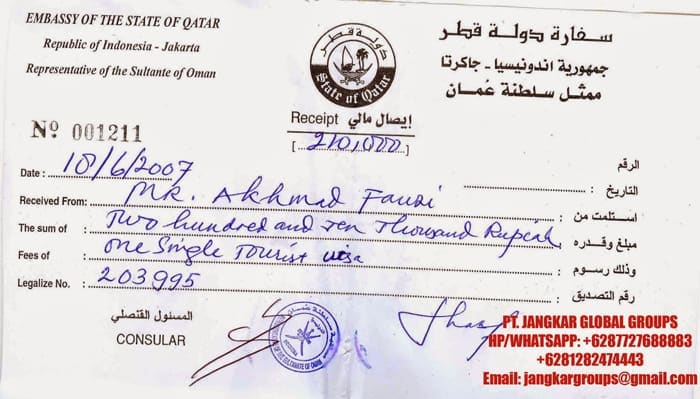 EMBASSY OF THE STATE OF QATAR
Republic of Indonesia - Jakarta
Representative of the Sultante of Oman
سفارة دولة قطر
جمهورية اندونيسيا - جاكرتا
ممثل سلطنة عُمان
دولة قطر
State of Qatar
Receipt إيصال مالي
[ 210,000 ]
Nº 001211
الرقم
Date : 18/6/2007 : التاريخ
Received From: Mr. Akhmad Fauzi : استلمت من
The sum of : Two hundred and Ten Thousand Rupiah : مبلغ وقدره
Fees of : One Single Tourist visa : وذلك رسوم
Legalize No. : 203995 : رقم التصديق
المسئول القنصلي
CONSULAR
PT. JANGKAR GLOBAL GROUPS
HP/WHATSAPP: +6287727688883
+6281282474443
Email: jangkargroups@gmail.com